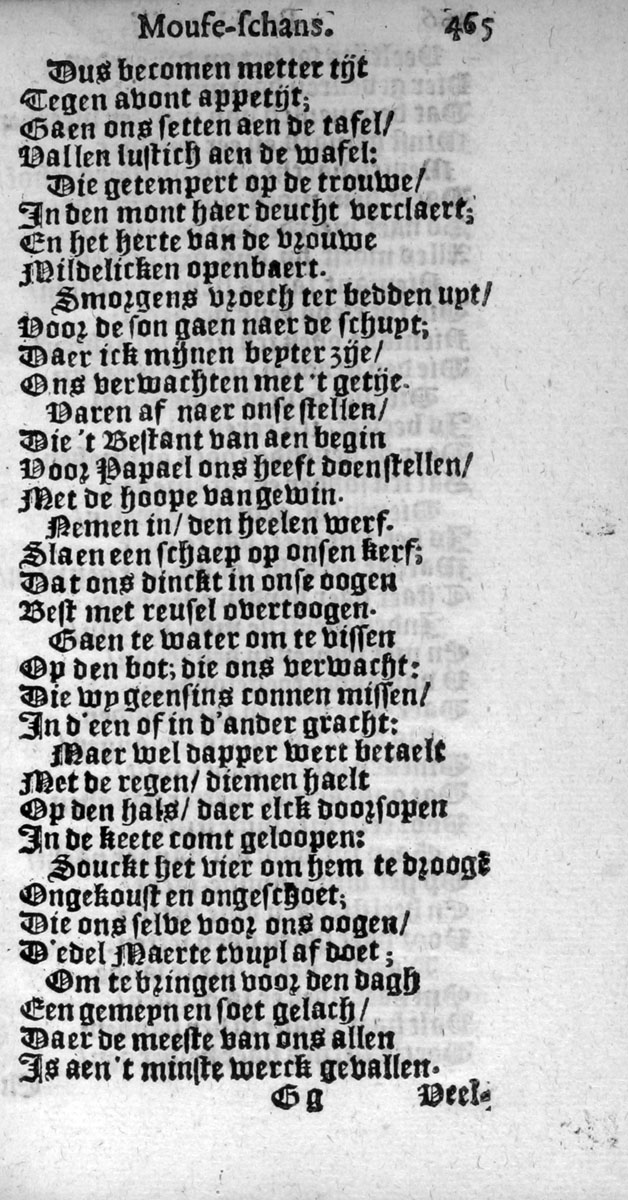 Mouse-schans. 465
Dus becomen metter tijt
Tegen avont appetijt;
Gaen ons setten aen de tafel/
Vallen lustich aen de wafel:
Die getempert op de trouwe/
In den mont haer deucht verclaert;
En het herte van de vrouwe
Mildelicken openbaert.
Smorgens vroech ter bedden uyt/
Voor de son gaen naer de schuyt;
Daer ick mijnen beyter zije/
Ons verwachten met 't getije.
Varen af naer onse stellen/
Die 't Bestant van aen begin
Voor Papael ons heeft doen stellen/
Met de hoope van gewin.
Nemen in/ den heelen werf.
Slaen een schaep op onsen kerf;
Dat ons dinckt in onse oogen
Best met reusel overtoogen.
Gaen te water om te vissen
Op den bot; die ons verwacht:
Die wy geensins connen missen/
In d'een of in d'ander gracht:
Maer wel dapper wert betaelt
Met de regen/ diemen haelt
Op den hals/ daer elck doorsopen
In de keete comt geloopen:
Souckt het vier om hem te drooge
Ongekoust en ongeschoet;
Die ons selve voor ons oogen/
D'edel Maerte tvuyl af doet;
Om te bringen voor den dagh
Een gemeyn en soet gelach/
Daer de meeste van ons allen
Is aen 't minste werck gevallen.
Gg Veel-